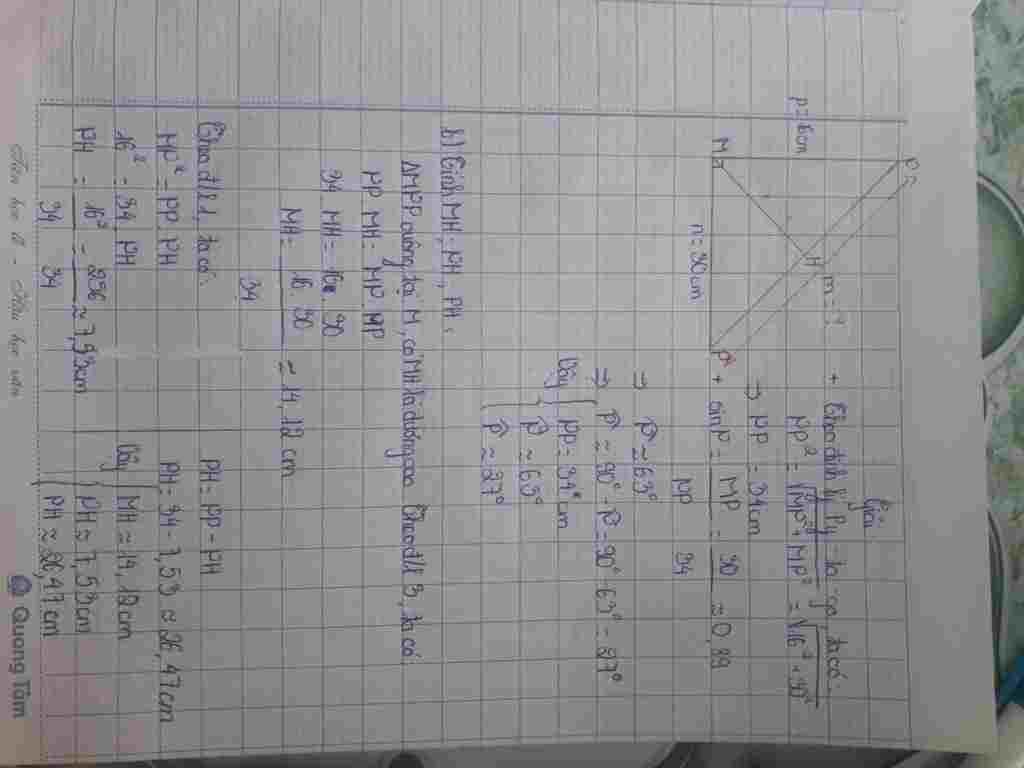 Giải
N
p = 16cm
H
m = ?
M
n = 30cm
P
+ Theo định lí Py - ta - go, ta có:
NP² = √MN² + MP² = √16² + 30²
⇒ NP = 34cm
+ sinN = MP/NP = 30/34 ≈ 0,89
⇒ N̂ ≈ 63°
⇒ P̂ ≈ 90° - N̂ = 90° - 63° = 27°
Vậy { NP = 34 cm
N̂ ≈ 63°
P̂ ≈ 27°
b) Tính MH, NH, PH:
ΔMNP vuông tại M, có MH là đường cao. Theo đlí 3, ta có:
NP. MH = MN. MP
34. MH = 16. 30
MH = 16. 30/34 ≈ 14,12 cm
Theo đlí 1, ta có:
MN² = NP. NH
16² = 34. NH
NH = 16²/34 = 256/34 ≈ 7,53cm
PH = NP - NH
PH = 34 - 7,53 ≈ 26,47cm
Vậy { MH ≈ 14,12 cm
NH ≈ 7,53cm
PH ≈ 26,47cm
Tiên học lễ - Hậu học văn
Quang Tâm